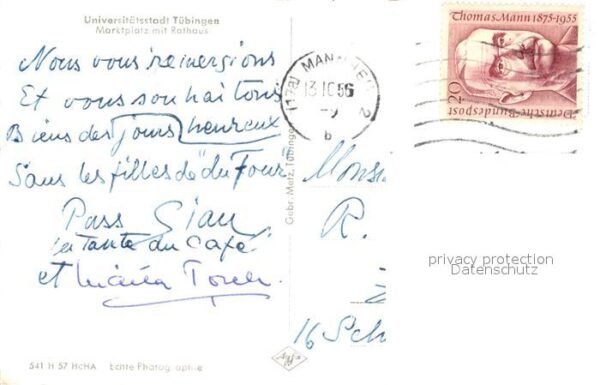 Universitätsstadt Tübingen
Marktplatz mit Rathaus
Nous vous remercions
Et vous souhaitons
Biens des jours heureux
Sans les filles de du Four
Pass Gian
la Tante du Café
et Maria
541 H 57 HcHA Echte Photographie
Gebr. Metz, Tübingen
Agfa
(17a) MANNHEIM 2
13.10.56
b
Thomas Mann 1875-1955
20
Deutsche Bundespost
Monsi
R.
16 Sch
privacy protection
Datenschutz